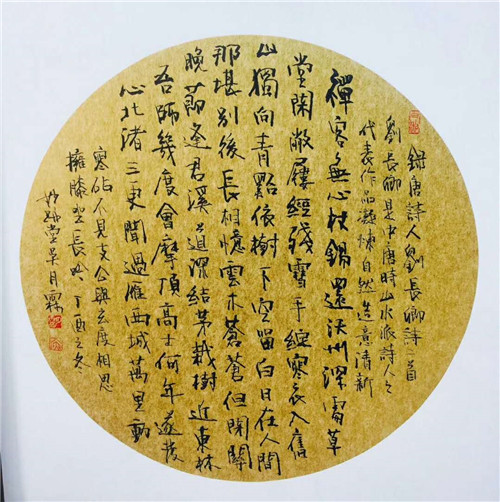 録唐詩人劉長卿詩二首
劉長卿是中唐時山水派詩人之
代表作品凝煉自然造意清新
禪客無心杖錫還沃州深處草
堂閑敝屨經殘雪手綻寒衣入舊
山獨向青點依樹下空留白日在人間
那堪別後長相憶雲木蒼蒼但閉關
晚節逢君溪道深結茅栽樹近東林
吾師幾度曾摩頂高士何年遂發
心北渚三更聞過雁西城萬里動
寒砧不見支公與玄度相思
擁膝坐長吟 丁酉之冬
堂吳月霖